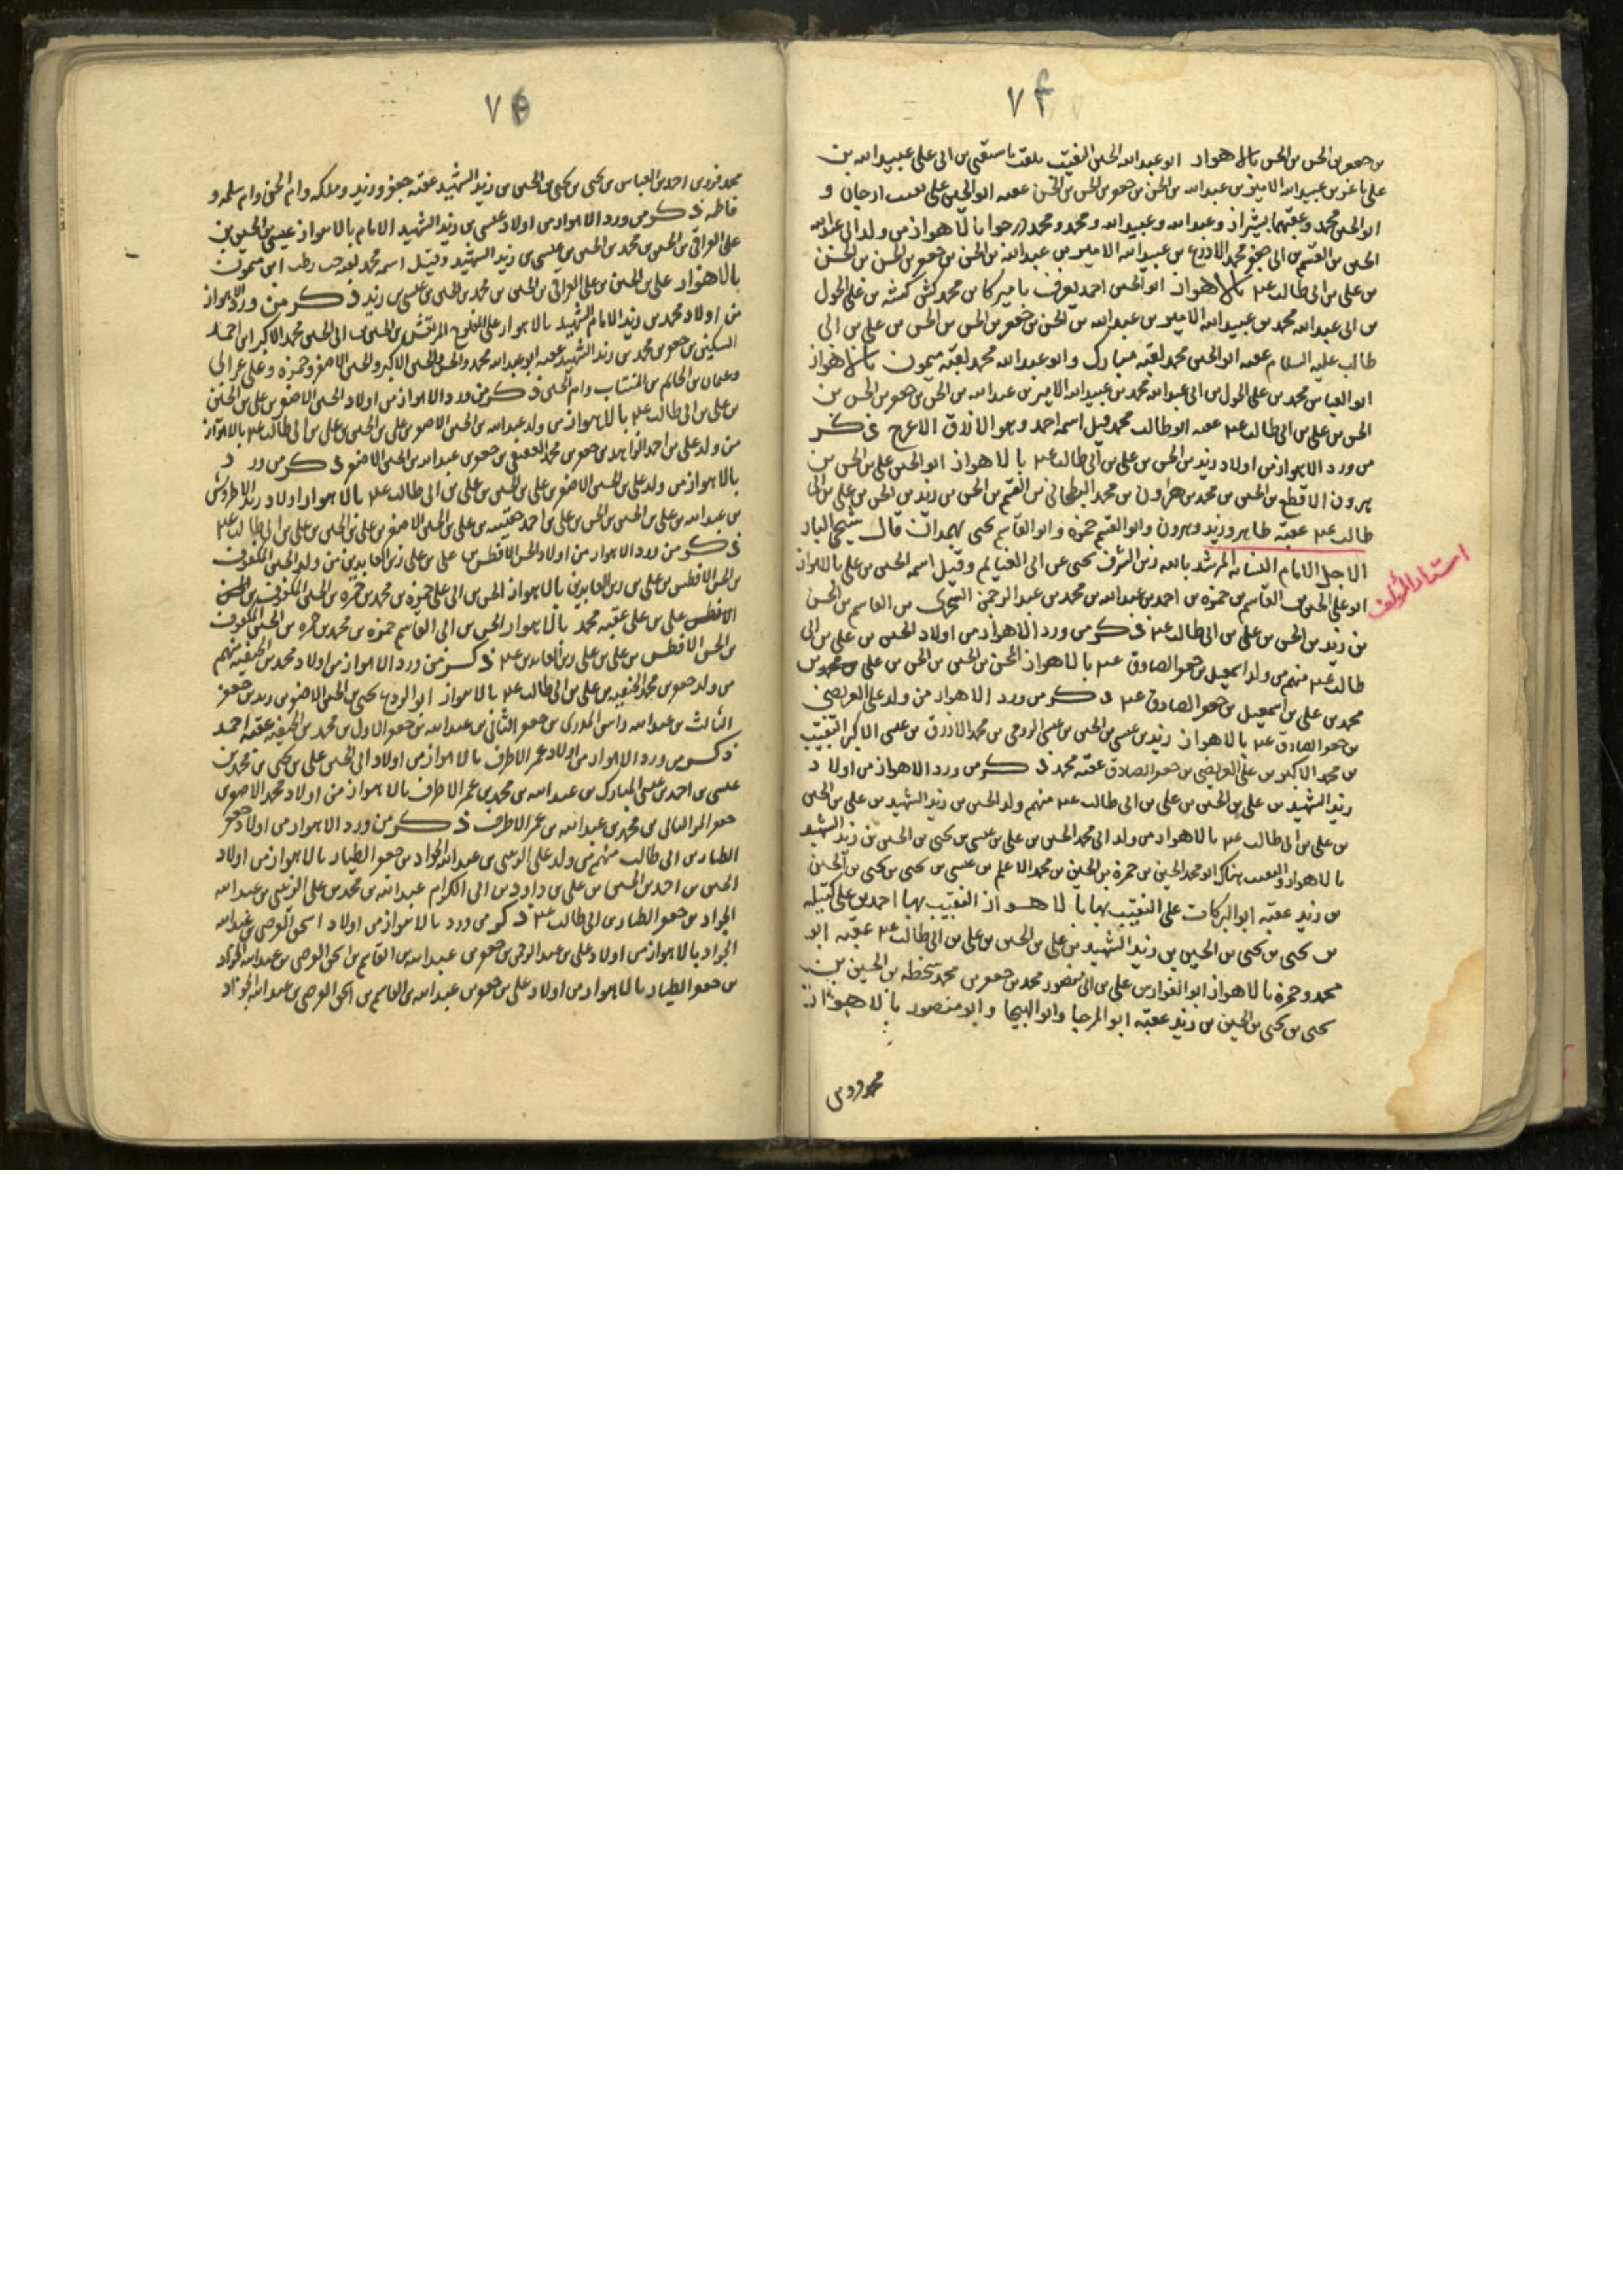 ٧٤
بن جعفر بن الحسن بن الحسن بالاهواز ابو عبد الله الحسين النقيب بن ابى على عبيد الله بن
على باغر بن عبيد الله الامير بن عبد الله بن الحسن بن جعفر بن الحسن بن الحسن عقبه ابو الحسين على ارجان و
ابو الحسن محمد وعقبهما بشيراز وعبد الله وعبيد الله ومحمد ومحمد درجوا بالاهواز من ولد ابى عبد الله
الحسين بن القسم بن ابى جعفر محمد الادرع بن عبيد الله الامير بن عبد الله بن الحسن بن جعفر بن الحسن بن الحسن
بن على بن ابى طالب ع بالاهواز ابو الحسين احمد يعرف باميركا بن محمد بن على الحول
بن ابى عبد الله محمد بن عبيد الله الامير بن عبد الله بن الحسن بن جعفر بن الحسن بن الحسن بن على بن ابى
طالب عليه السلام عقبه ابو الحسن محمد لقبه مبارك وابو عبد الله محمد لقبه ميمون بالاهواز
ابو العباس محمد بن على الحول بن ابى عبد الله محمد بن عبيد الله الامير بن عبد الله بن الحسن بن جعفر بن الحسن بن
الحسن بن على بن ابى طالب ع عقبه ابو طالب محمد وقيل اسمه احمد وهو الاعرج ذكر
من ورد الاهواز من اولاد زيد بن الحسن بن على بن ابى طالب ع بالاهواز ابو الحسن على بن الحسن بن
هرون الاقطع بن الحسين بن محمد بن هرون بن محمد البطحانى بن القسم بن الحسن بن زيد بن الحسن بن على بن ابى
طالب ع عقبه طاهر وزيد وهرون وابو القسم حمزه وابو القاسم يحيى بهمدان قال شيخى البار
الاجل الامام النسابه المرشد بالله زين الشرف يحيى عن ابى الغنايم وقيل اسمه الحسين بن على بالاهواز
استاد المؤلف
ابو على الحسن بن القاسم بن حمزه بن احمد بن عبد الله بن محمد بن عبد الرحمن الشجرى بن القاسم بن الحسن
بن زيد بن الحسن بن على بن ابى طالب ع ذكر من ورد الاهواز من اولاد الحسين بن على بن ابى
طالب ع منهم من ولد اسمعيل بن جعفر الصادق ع بالاهواز الحسن بن الحسين بن الحسن بن على بن محمد بن
محمد بن على بن اسمعيل بن جعفر الصادق ع ذكر من ورد الاهواز من ولد على العريضى
بن جعفر الصادق ع بالاهواز زيد بن عيسى بن الحسين بن عيسى الرومى بن محمد الازرق بن عيسى الاكبر النقيب
بن محمد الاكبر بن على العريضى بن جعفر الصادق عقبه محمد ذكر من ورد الاهواز من اولاد
زيد الشهيد بن على بن الحسين بن على بن ابى طالب ع منهم ولد الحسين بن زيد الشهيد بن على بن الحسين
بن على بن ابى طالب ع بالاهواز من ولد ابى محمد الحسن بن على بن عيسى بن يحيى بن الحسين بن زيد الشهيد
بالاهواز والنقيب هناك ابو محمد الحسين بن حمزة بن الحسين بن محمد الاعلم بن عيسى بن يحيى بن يحيى بن الحسين
بن زيد عقبه ابو البركات على النقيب بها بالاهواز النقيب بها احمد بن على كتيله
بن يحيى بن يحيى بن الحسين بن زيد الشهيد بن على بن الحسين بن على بن ابى طالب ع عقبه ابو
محمد وحمزة بالاهواز ابو الفوارس على بن ابى منصور محمد بن جعفر بن محمد سخطه بن الحسين بن
يحيى بن يحيى بن الحسين بن زيد عقبه ابو المرجا وابو الهيجا وابو منصور بالاهواز
محمد فرد بن
٧٥
محمد فرد بن احمد بن العباس بن يحيى بن يحيى بن الحسين بن زيد الشهيد عقبه جعفر وزيد وملكه وام الحسن وام سلمه و
فاطمه ذكر من ورد الاهواز من اولاد عيسى بن زيد الشهيد الامام بالاهواز عيسى بن الحسين بن
على العراقى بن الحسين بن محمد بن الحسين بن عيسى بن زيد الشهيد وقيل اسمه محمد ابن ميمون
بالاهواز على بن الحسين بن على العراقى بن الحسين بن محمد بن الحسين بن عيسى بن زيد ذكر من ورد الاهواز
من اولاد محمد بن زيد الامام الشهيد بالاهواز على بن الحسين بن ابى الحسن محمد الاكبر بن احمد
السكين بن جعفر بن محمد بن زيد الشهيد عقبه ابو عبد الله محمد والحسن والحسين الاكبر والحسين الاصغر وحمزه وعلى
وام الحسين ذكر من ورد الاهواز من اولاد الحسين الاصغر بن على بن الحسين
بن على بن ابى طالب ع بالاهواز من ولد عبد الله بن الحسين الاصغر بن على بن الحسين بن على بن ابى طالب ع بالاهواز
من ولد على بن احمد الزاهد بن جعفر بن محمد العقيقى بن جعفر بن عبد الله بن الحسين الاصغر ذكر من ورد
بالاهواز من ولد على بن الحسين الاصغر بن على بن الحسين بن على بن ابى طالب ع بالاهواز اولاد زيد الاطروش
بن عبد الله بن على بن الحسين بن الحسن بن على بن احمد حقينه بن على بن الحسين الاصغر بن على بن الحسين بن على بن ابى طالب ع
ذكر من ورد الاهواز من اولاد الحسن الافطس بن على بن على زين العابدين من ولد الحسين المكفوف
بن الحسن الافطس بن على بن زين العابدين بالاهواز الحسن بن ابى على حمزه بن محمد بن حمزه بن الحسين المكفوف بن الحسن
الافطس على بن على عقبه محمد بالاهواز الحسن بن ابى القاسم حمزه بن محمد بن حمزه بن الحسين المكفوف
بن الحسن الافطس بن على بن على زين العابدين ع ذكر من ورد الاهواز من اولاد محمد بن الحنفيه منهم
من ولد جعفر بن محمد الحنفيه بن على بن ابى طالب ع بالاهواز يحيى بن الحسن الاصغر بن زيد بن جعفر
الثالث بن عبد الله راس المذرى بن جعفر الثانى بن عبد الله بن جعفر الاول بن محمد بن الحنفيه عقبه احمد
ذكر من ورد الاهواز من اولاد عمر الاطرف بالاهواز من اولاد ابى الحسن على بن يحيى بن محمد بن
عيسى بن احمد بن عيسى المبارك بن عبد الله بن محمد بن عمر الاطرف بالاهواز من اولاد محمد الاصغر بن
جعفر بن محمد بن عبد الله بن عمر الاطرف ذكر من ورد الاهواز من اولاد جعفر
الطيار بن ابى طالب منهم من ولد على الزينبى بن عبد الله الجواد بن جعفر الطيار بالاهواز من اولاد
الحسن بن احمد بن الحسين بن على بن داود بن ابى الكرام عبد الله بن محمد بن على الزينبى بن عبد الله
الجواد بن جعفر الطيار بن ابى طالب ع ذكر من ورد بالاهواز من اولاد اسحق العرضى بن عبد الله
الجواد بالاهواز من اولاد على بن عبد الرحمن بن جعفر بن عبد الله بن القاسم بن اسحق العرضى بن عبد الله الجواد
بن جعفر الطيار بالاهواز من اولاد على بن جعفر بن عبد الله بن القاسم بن اسحق العرضى بن عبد الله الجواد